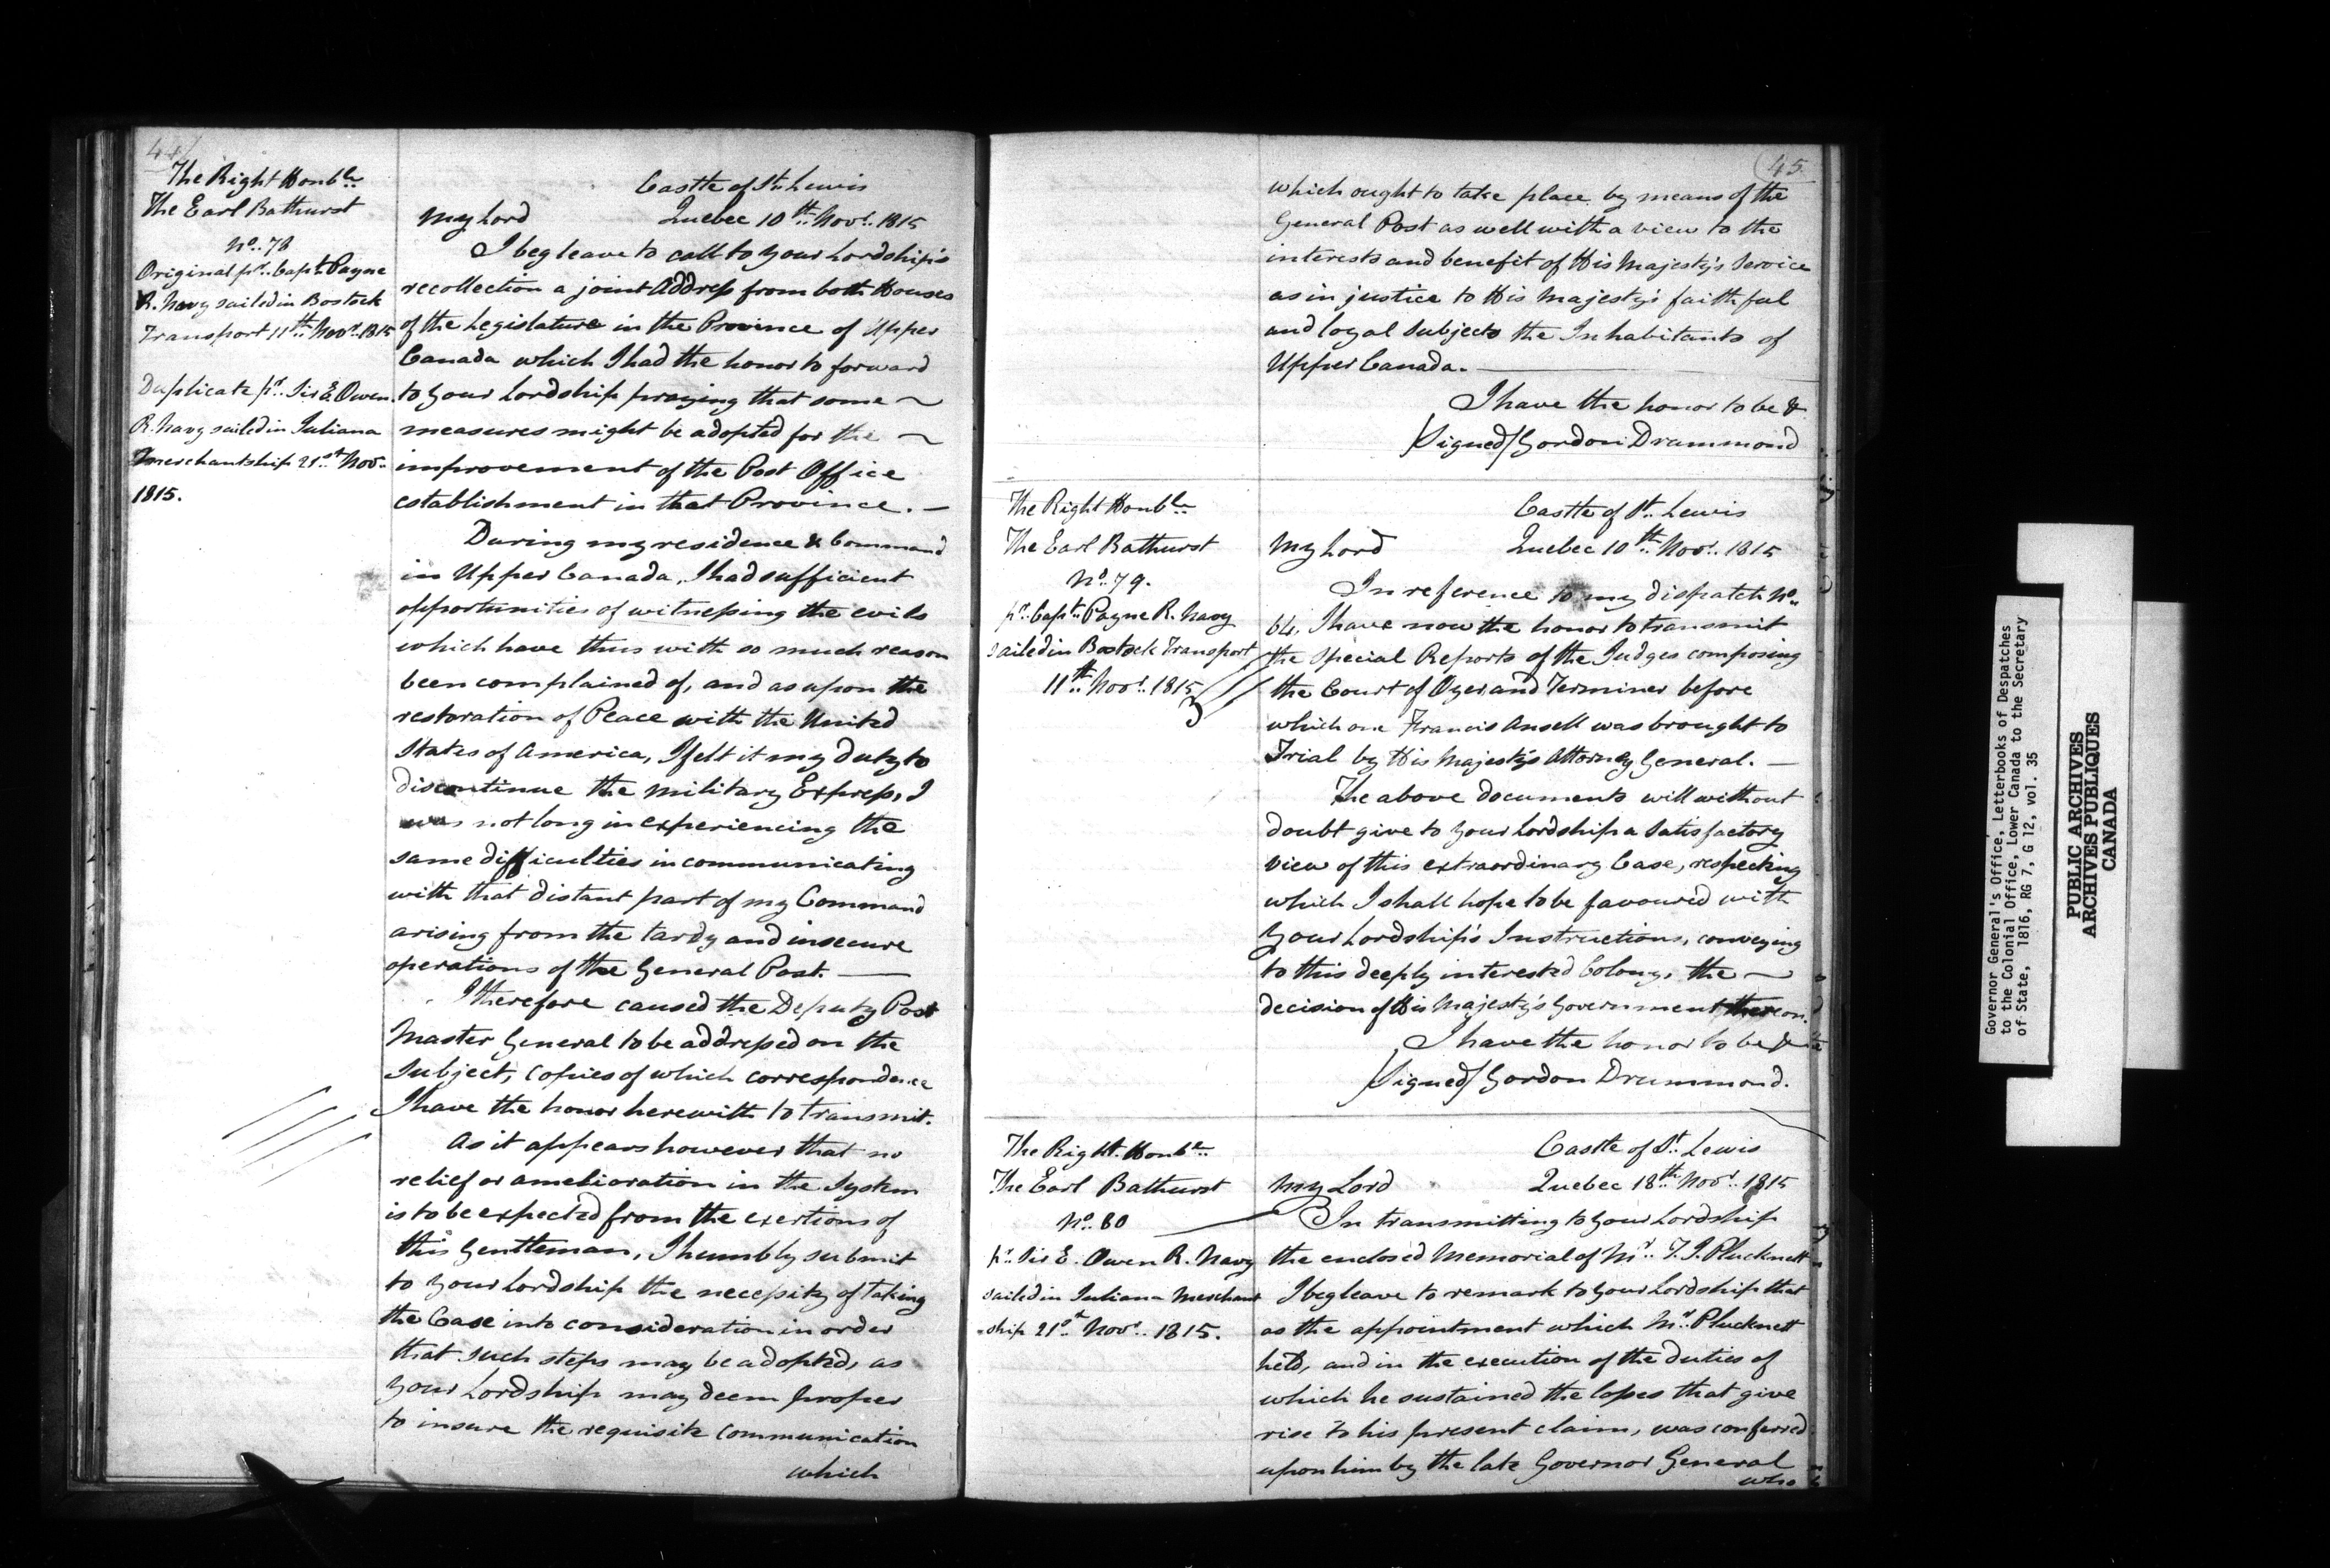 44
The Right Honble
The Earl Bathurst
No. 78
Original pr. Capt. Payne
R. Navy sailed in Bostock
Transport 11th Novr. 1815
Duplicate pr. Sir E. Owen
R. Navy sailed in Juliana
Merchantship 21st Nov.
1815.
Castle of St. Lewis
My Lord Quebec 10th Novr. 1815
I beg leave to call to your Lordship's
recollection a joint Address from both Houses
of the Legislature in the Province of Upper
Canada which I had the honor to forward
to your Lordship praying that some ~
measures might be adopted for the ~
improvement of the Post Office
establishment in that Province. —
During my residence & Command
in Upper Canada, I had sufficient
opportunities of witnessing the evils
which have thus with so much reason
been complained of, and as upon the
restoration of Peace with the United
States of America, I felt it my duty to
discontinue the Military Express, I
was not long in experiencing the
same difficulties in communicating
with that distant part of my Command
arising from the tardy and insecure
operations of the General Post. —
I therefore caused the Deputy Post
Master General to be addressed on the
Subject, copies of which correspondence
I have the honor herewith to transmit.
As it appears however that no
relief or amelioration in the System
is to be expected from the exertions of
this Gentleman, I humbly submit
to your Lordship the necessity of taking
the Case into consideration in order
that such steps may be adopted, as
your Lordship may deem proper
to insure the requisite communication
which
45
which ought to take place by means of the
General Post as well with a view to the
interests and benefit of His Majesty's Service
as in justice to His Majesty's faithful
and loyal Subjects the Inhabitants of
Upper Canada. —
I have the honor to be &
/Signed/ Gordon Drummond
The Right Honble
The Earl Bathurst
No. 79.
pr. Capt. Payne R. Navy
sailed in Bostock Transport
11th Novr. 1815
3
Castle of St. Lewis
My Lord Quebec 10th Novr. 1815
In reference to my dispatch No.
64, I have now the honor to transmit
the Special Reports of the Judges composing
the Court of Oyer and Terminer before
which one Francis Ansell was brought to
Trial by His Majesty's Attorney General. —
The above documents will without
doubt give to your Lordship a Satisfactory
view of this extraordinary Case, respecting
which I shall hope to be favoured with
your Lordship's Instructions, conveying
to this deeply interested Colony, the ~
decision of His Majesty's Government thereon.
I have the honor to be &c
/Signed/ Gordon Drummond.
The Right Honble
The Earl Bathurst
No. 80
pr. Sir E. Owen R. Navy
sailed in Juliana Merchant
-ship 21st Novr. 1815.
Castle of St. Lewis
My Lord Quebec 18th Novr. 1815
In transmitting to your Lordship
the enclosed Memorial of Mr. T. J. Plucknett
I beg leave to remark to your Lordship that
as the appointment which Mr. Plucknett
held, and in the execution of the duties of
which he sustained the losses that give
rise to his present claim, was conferred
upon him by the late Governor General
who
Governor General's Office, Letterbooks of Despatches
to the Colonial Office, Lower Canada to the Secretary
of State, 1816, RG 7, G 12, vol. 35
PUBLIC ARCHIVES
ARCHIVES PUBLIQUES
CANADA